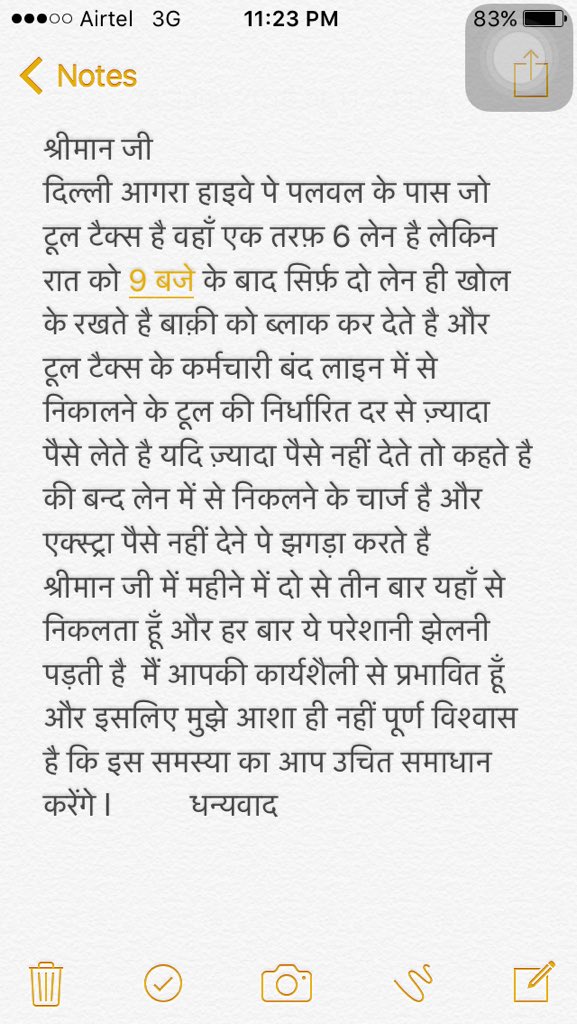 Airtel 3G 11:23 PM 83%
Notes
श्रीमान जी
दिल्ली आगरा हाइवे पे पलवल के पास जो
टूल टैक्स है वहाँ एक तरफ़ 6 लेन है लेकिन
रात को 9 बजे के बाद सिर्फ़ दो लेन ही खोल
के रखते है बाक़ी को ब्लाक कर देते है और
टूल टैक्स के कर्मचारी बंद लाइन में से
निकालने के टूल की निर्धारित दर से ज़्यादा
पैसे लेते है यदि ज़्यादा पैसे नहीं देते तो कहते है
की बन्द लेन में से निकलने के चार्ज है और
एक्स्ट्रा पैसे नहीं देने पे झगड़ा करते है
श्रीमान जी में महीने में दो से तीन बार यहाँ से
निकलता हूँ और हर बार ये परेशानी झेलनी
पड़ती है मैं आपकी कार्यशैली से प्रभावित हूँ
और इसलिए मुझे आशा ही नहीं पूर्ण विश्वास
है कि इस समस्या का आप उचित समाधान
करेंगे l धन्यवाद